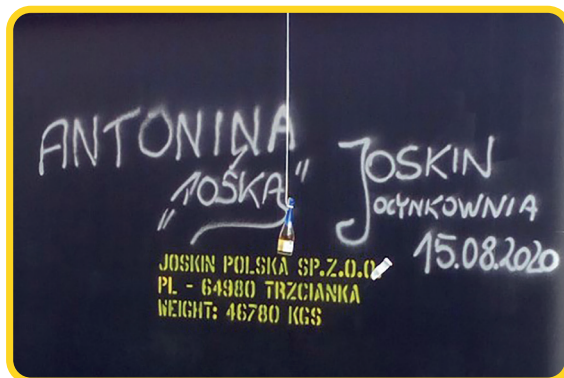 ANTONINA
"TOŚKA"
JOSKIN
OCYNKOWNIA
15.08.2020
JOSKIN POLSKA SP.Z.O.O
PL - 64980 TRZCIANKA
WEIGHT: 46780 KGS